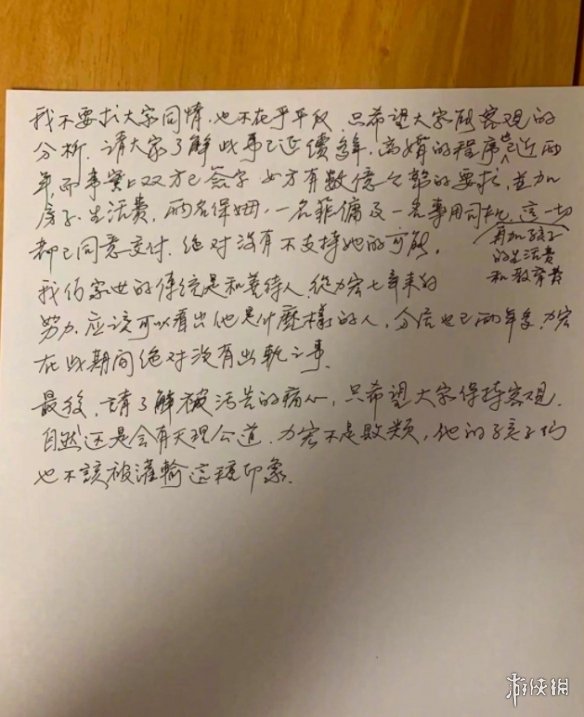 我不要求大家同情，也不在乎平反，只希望大家能客观的
分析。请大家了解此事已延續多年，离婚的程序也已近两
年，而事實上双方已簽字，女方有数億台幣的要求，並加
房子、生活費，两名保姆，一名菲傭及一名專用司机，這一切
再加孩子
的生活費
和教育費
都已同意交付，绝对沒有不支持她的可能。
我们家世的傳統是和善待人，從力宏七年来的
努力，应该可以看出他是什麼樣的人，分居也已两年多，力宏
在此期间绝对沒有出軌之事。
最後，請了解被污告的痛心，只希望大家保持客观，
自然还是会有天理公道。力宏不是敗類，他的孩子们
也不該被灌輸這種印象。
游侠網